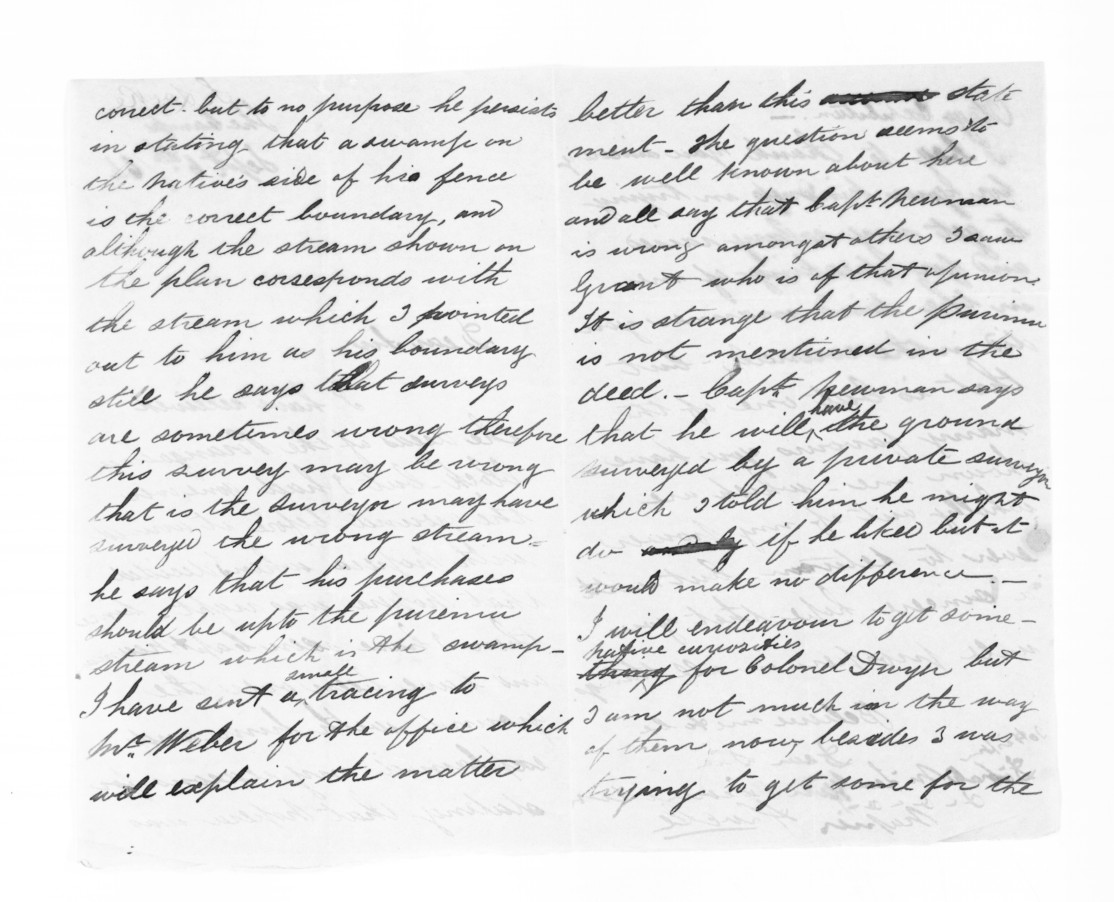 correct. but to no purpose he persists
in stating that a swamp on
the Native's side of his fence
is the correct boundary, and
although the stream shown on
the plan corresponds with
the stream which I pointed
out to him as his boundary
still he says that surveys
are sometimes wrong therefore
this survey may be wrong
that is the surveyor may have
surveyed the wrong stream -
he says that his purchases
should be up to the purimu
stream which is the swamp -
I have sent a small tracing to
Mr. Weber for the office which
will explain the matter
better than this state
ment - The question seems to
be well known about here
and all say that Capt. Newman
is wrong amongst others I saw
Grant who is of that opinion.
It is strange that the purimu
is not mentioned in the
deed. - Capt. Newman says
that he will have the ground
surveyed by a private surveyor
which I told him he might
do if he liked but it
would make no difference -
I will endeavour to get some -
thing native curiosities for Colonel Dwyer but
I am not much in the way
of them now, besides I was
trying to get some for the